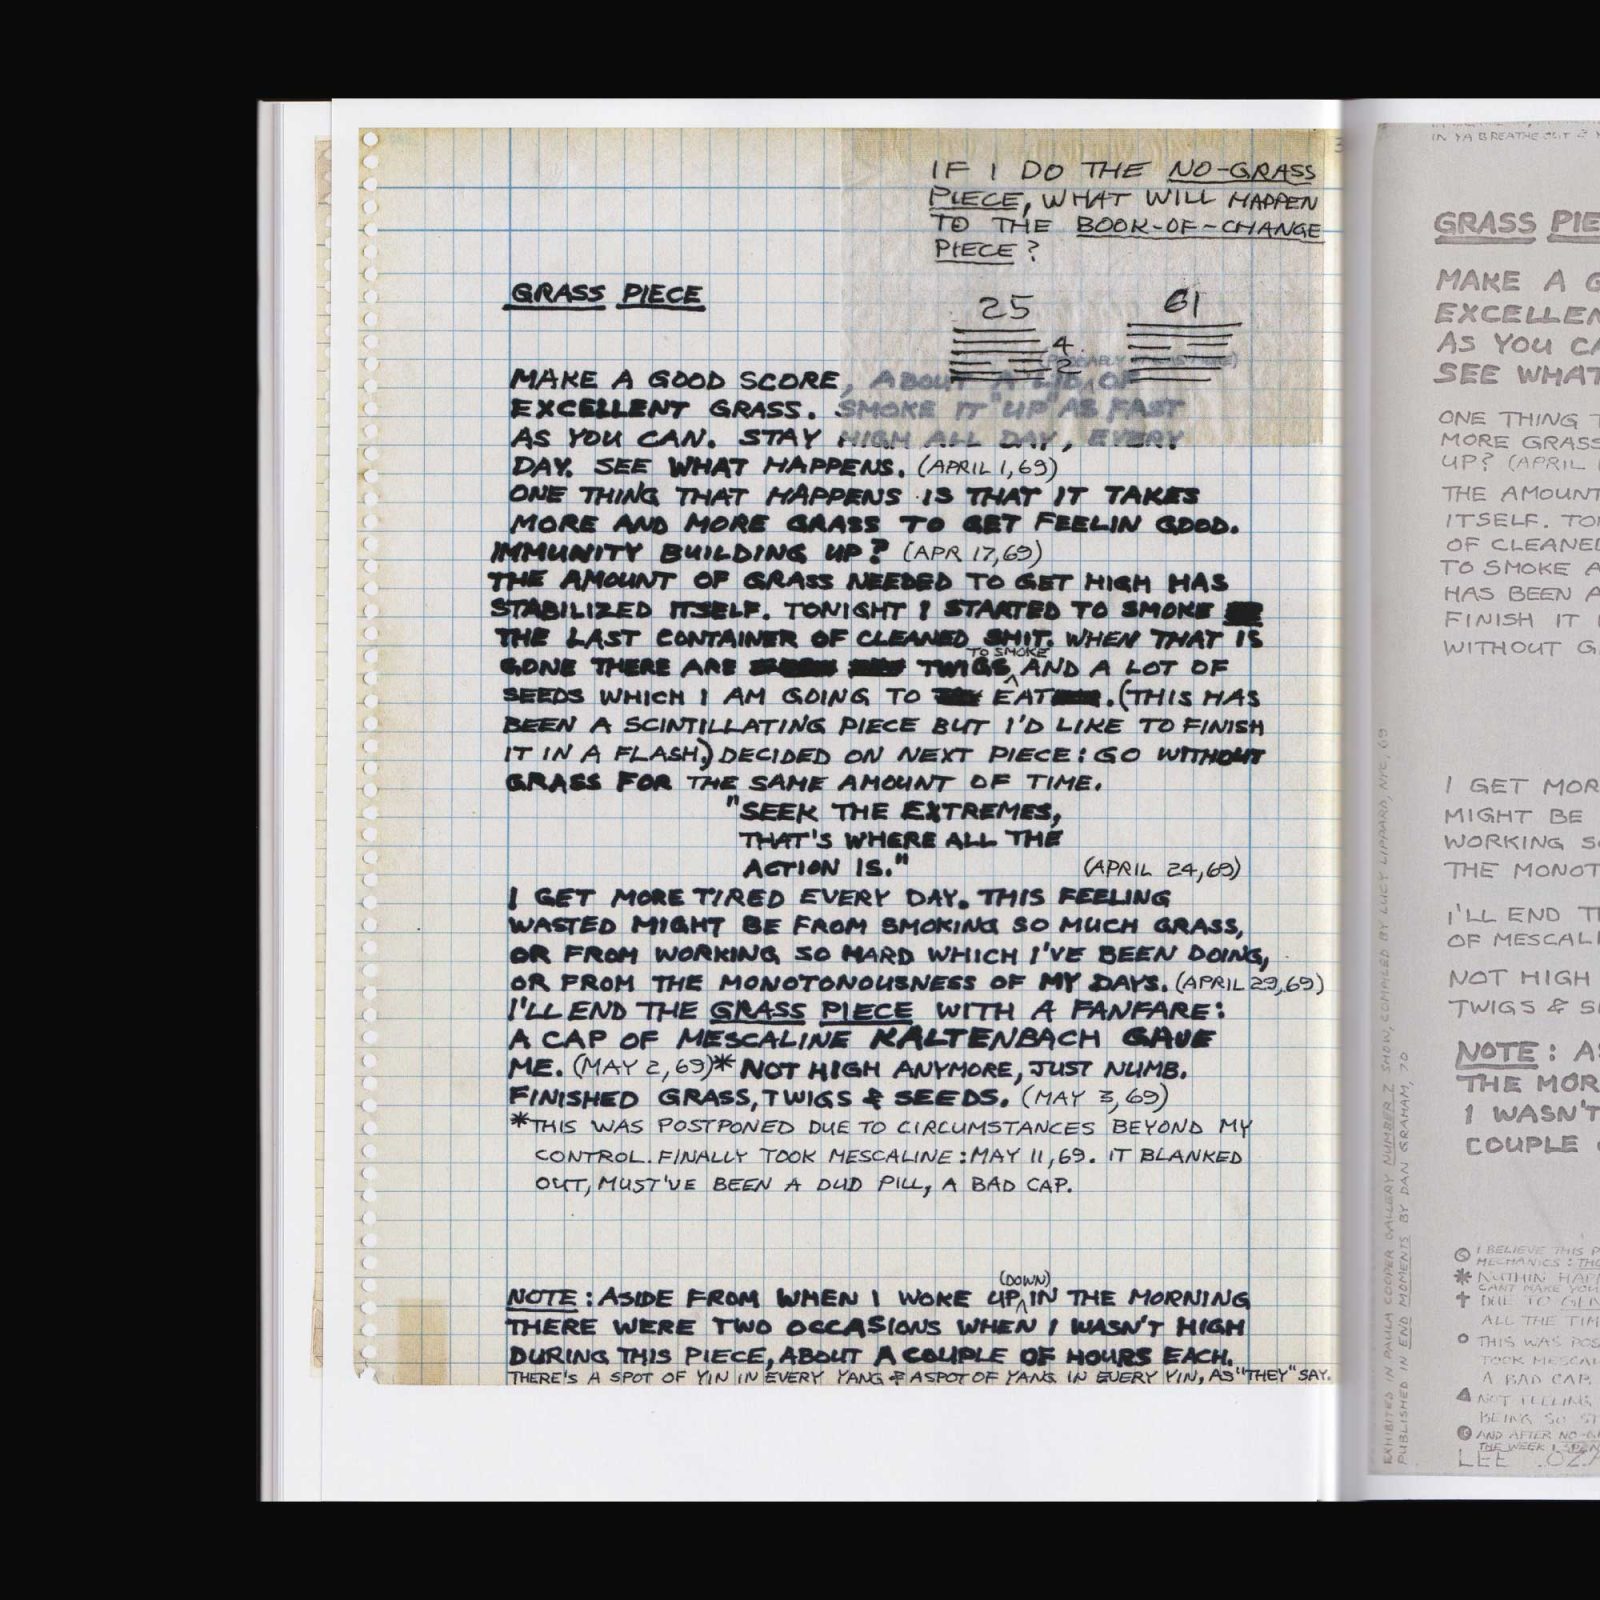 IF I DO THE NO-GRASS
PIECE, WHAT WILL HAPPEN
TO THE BOOK-OF-CHANGE
PIECE?
25
61
4
2
GRASS PIECE
MAKE A GOOD SCORE, ABOUT A LID OF
EXCELLENT GRASS. SMOKE IT "UP" AS FAST
AS YOU CAN. STAY HIGH ALL DAY, EVERY
DAY. SEE WHAT HAPPENS. (APRIL 1, 69)
ONE THING THAT HAPPENS IS THAT IT TAKES
MORE AND MORE GRASS TO GET FEELIN GOOD.
IMMUNITY BUILDING UP? (APR 17, 69)
THE AMOUNT OF GRASS NEEDED TO GET HIGH HAS
STABILIZED ITSELF. TONIGHT I STARTED TO SMOKE
THE LAST CONTAINER OF CLEANED SHIT. WHEN THAT IS
GONE THERE ARE TWIGS TO SMOKE AND A LOT OF
SEEDS WHICH I AM GOING TO EAT. (THIS HAS
BEEN A SCINTILLATING PIECE BUT I'D LIKE TO FINISH
IT IN A FLASH.) DECIDED ON NEXT PIECE: GO WITHOUT
GRASS FOR THE SAME AMOUNT OF TIME.
"SEEK THE EXTREMES,
THAT'S WHERE ALL THE
ACTION IS." (APRIL 24, 69)
I GET MORE TIRED EVERY DAY. THIS FEELING
WASTED MIGHT BE FROM SMOKING SO MUCH GRASS,
OR FROM WORKING SO HARD WHICH I'VE BEEN DOING,
OR FROM THE MONOTONOUSNESS OF MY DAYS. (APRIL 29, 69)
I'LL END THE GRASS PIECE WITH A FANFARE:
A CAP OF MESCALINE KALTENBACH GAVE
ME. (MAY 2, 69)* NOT HIGH ANYMORE, JUST NUMB.
FINISHED GRASS, TWIGS & SEEDS. (MAY 3, 69)
*THIS WAS POSTPONED DUE TO CIRCUMSTANCES BEYOND MY
CONTROL. FINALLY TOOK MESCALINE: MAY 11, 69. IT BLANKED
OUT, MUST'VE BEEN A DUD PILL, A BAD CAP.
NOTE: ASIDE FROM WHEN I WOKE UP (DOWN) IN THE MORNING
THERE WERE TWO OCCASIONS WHEN I WASN'T HIGH
DURING THIS PIECE, ABOUT A COUPLE OF HOURS EACH.
THERE'S A SPOT OF YIN IN EVERY YANG & A SPOT OF YANG IN EVERY YIN, AS "THEY" SAY.
IN YA BREATHE OUT
GRASS PIE
MAKE A G
EXCELLEN
AS YOU CA
SEE WHAT
ONE THING T
MORE GRASS
UP? (APRIL
THE AMOUNT
ITSELF. TO
OF CLEANED
TO SMOKE A
HAS BEEN A
FINISH IT
WITHOUT G
I GET MOR
MIGHT BE
WORKING S
THE MONOT
I'LL END T
OF MESCALI
NOT HIGH
TWIGS & S
NOTE: AS
THE MOR
I WASN'T
COUPLE
I BELIEVE THIS P
MECHANICS: THO
* NUTHIN HAP
CANT MAKE YOU
ALL THE TIM
THIS WAS POS
TOOK MESCAL
A BAD CAP.
NOT FEELING
BEING SO ST
AND AFTER NO-G
THE WEEK I SPEN
LEE LOZA
EXHIBITED IN PAULA COOPER GALLERY NUMBER 7 SHOW, COMPILED BY LUCY LIPPARD, NYC, 69
PUBLISHED IN END MOMENTS BY DAN GRAHAM, 70